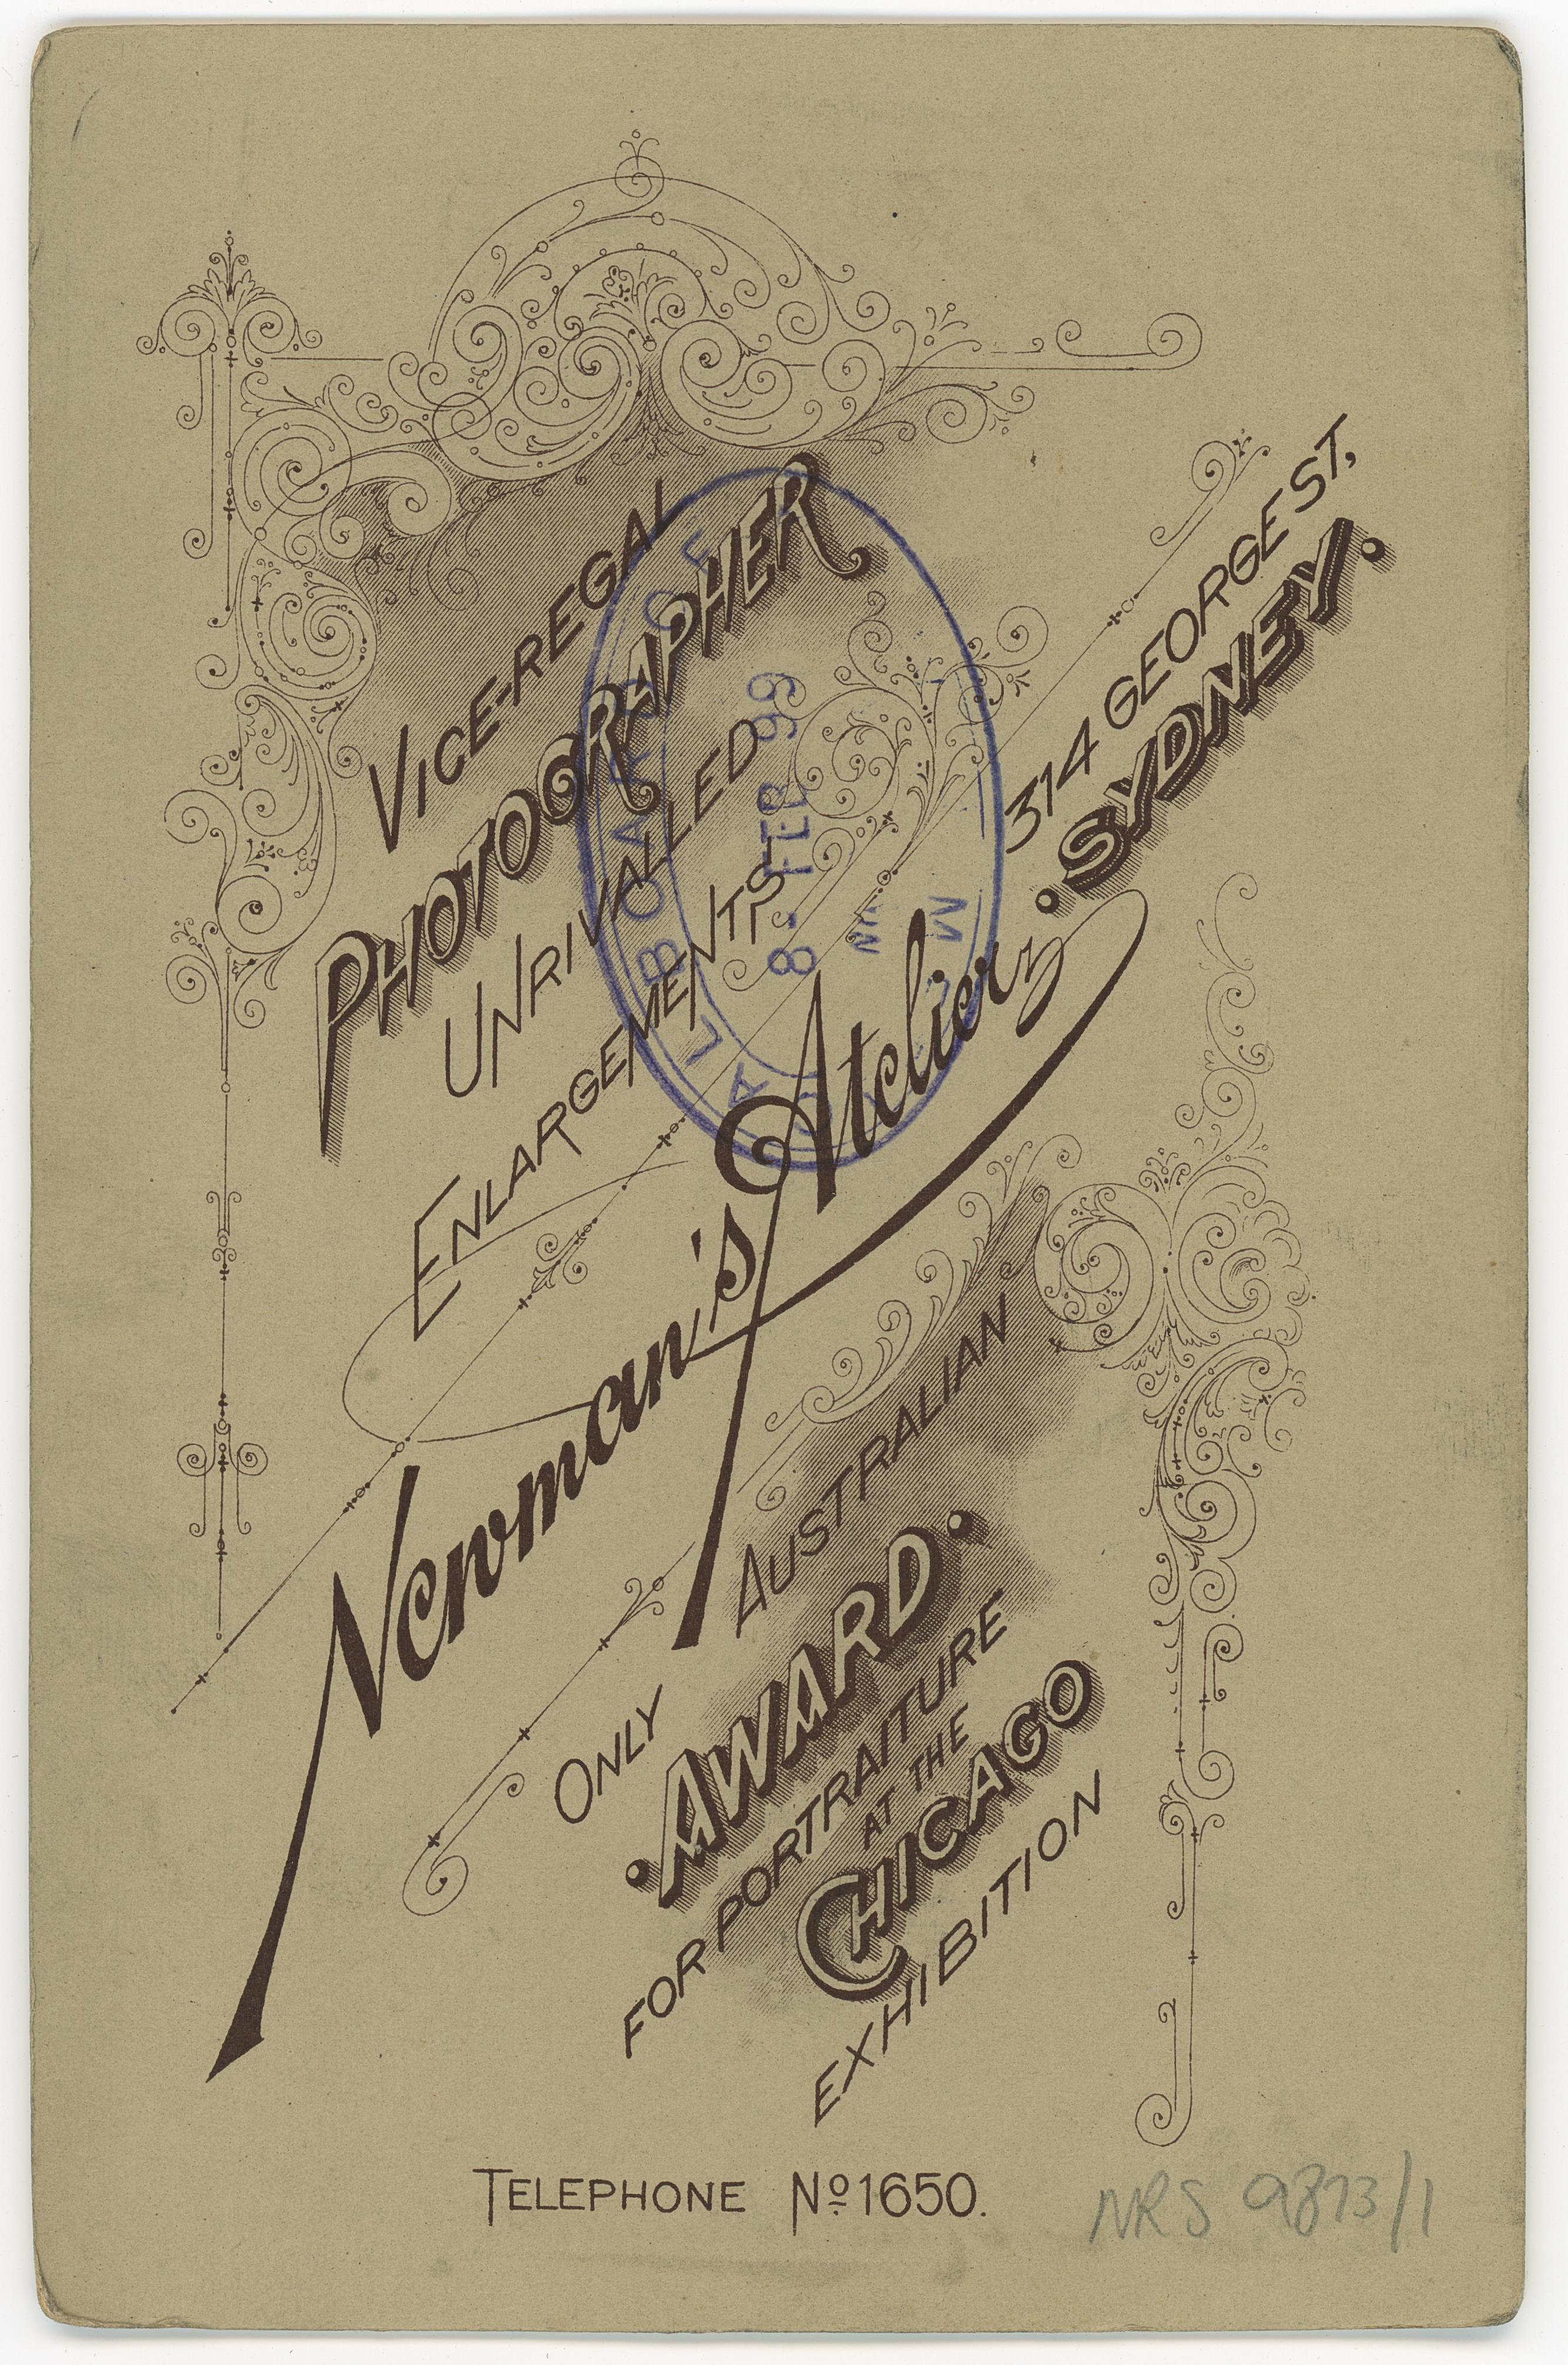 VICE-REGAL
PHOTOGRAPHER
UNRIVALLED
ENLARGEMENTS
Newman's Atelier
314 GEORGE ST,
SYDNEY.
ONLY AUSTRALIAN
AWARD
FOR PORTRAITURE
AT THE
CHICAGO
EXHIBITION
TELEPHONE No 1650.
NRS 9873/1
8 - FEB 99
BOARD OF